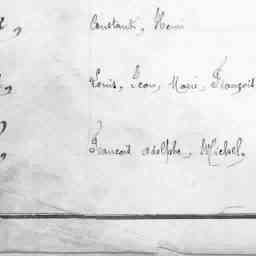 Constant, Henri
Louis, Jean, Marie, François
François Adolphe, Michel.